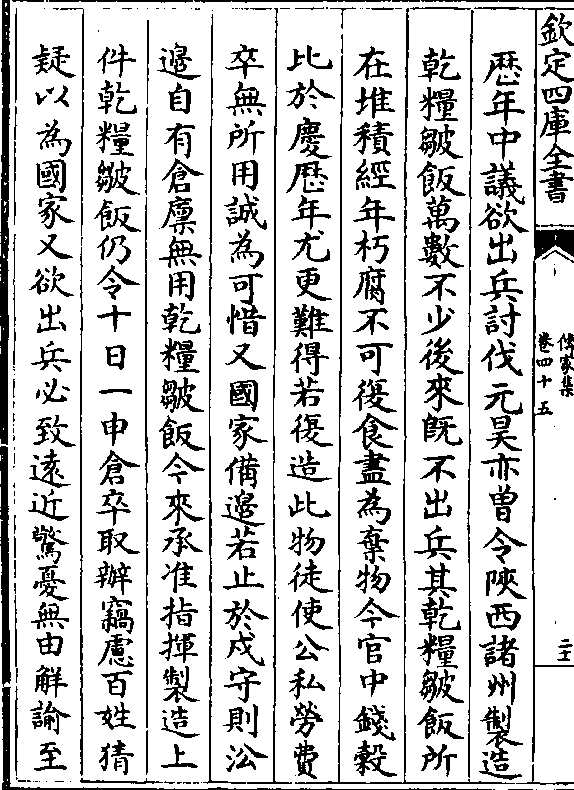 欽定四庫全書
傳家集
卷四十五
二十五
歴年中議欲出兵討伐元昊亦曽令陜西諸州製造
乾糧皺飯萬數不少後來旣不出兵其乾糧皺飯所
在堆積經年朽腐不可復食盡為棄物今官中錢榖
比於慶歴年尤更難得若復造此物徒使公私勞費
卒無所用誠為可惜又國家備邊若止於戍守則㳂
邊自有倉廩無用乾糧皺飯今來承准指揮製造上
件乾糧皺飯仍令十日一申倉卒取辦竊慮百姓猜
疑以為國家又欲出兵必致逺近驚憂無由解諭至